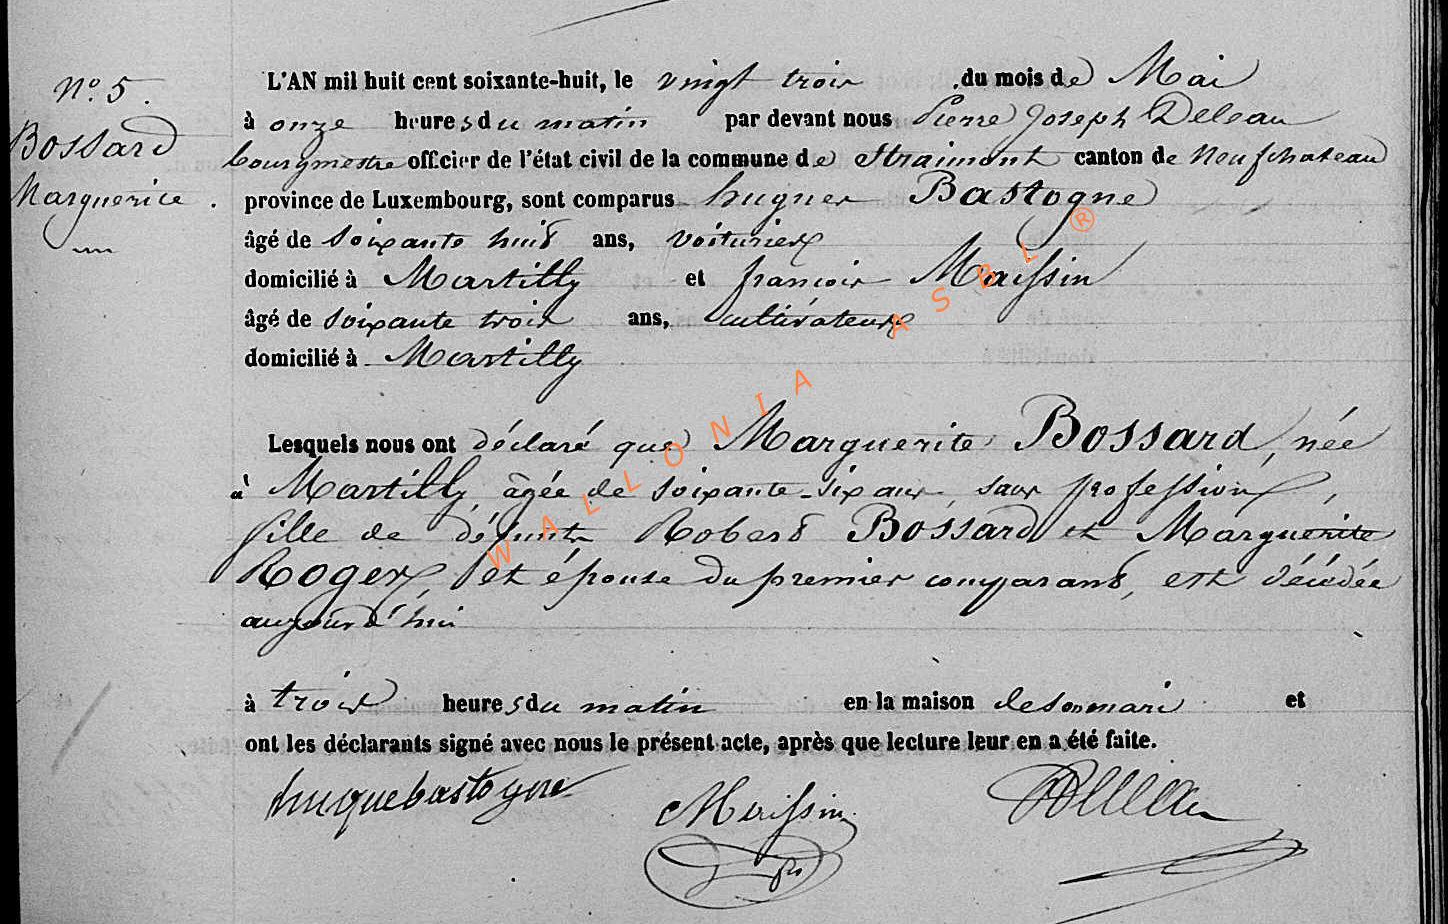 N° 5.
Bossard
Marguerite.
L'AN mil huit cent soixante-huit, le vingt trois du mois de Mai
à onze heures du matin par devant nous Pierre Joseph Deleau
bourgmestre officier de l'état civil de la commune de Straimont canton de Neufchateau
province de Luxembourg, sont comparus hugues Bastogne
âgé de soixante huit ans, voiturier
domicilié à Martilly et françois Maissin
âgé de soixante trois ans, cultivateur
domicilié à Martilly
Lesquels nous ont déclaré que Marguerite Bossard, née
à Martilly, âgée de soixante-six ans, sans profession,
fille de défunts Robert Bossard et Marguerite
Roger, et épouse du premier comparant, est décédée
aujourd'hui
à trois heures du matin en la maison de son mari et
ont les déclarants signé avec nous le présent acte, après que lecture leur en a été faite.
huguebastogne Maissin Deleau
WALLONIA ASBL ®